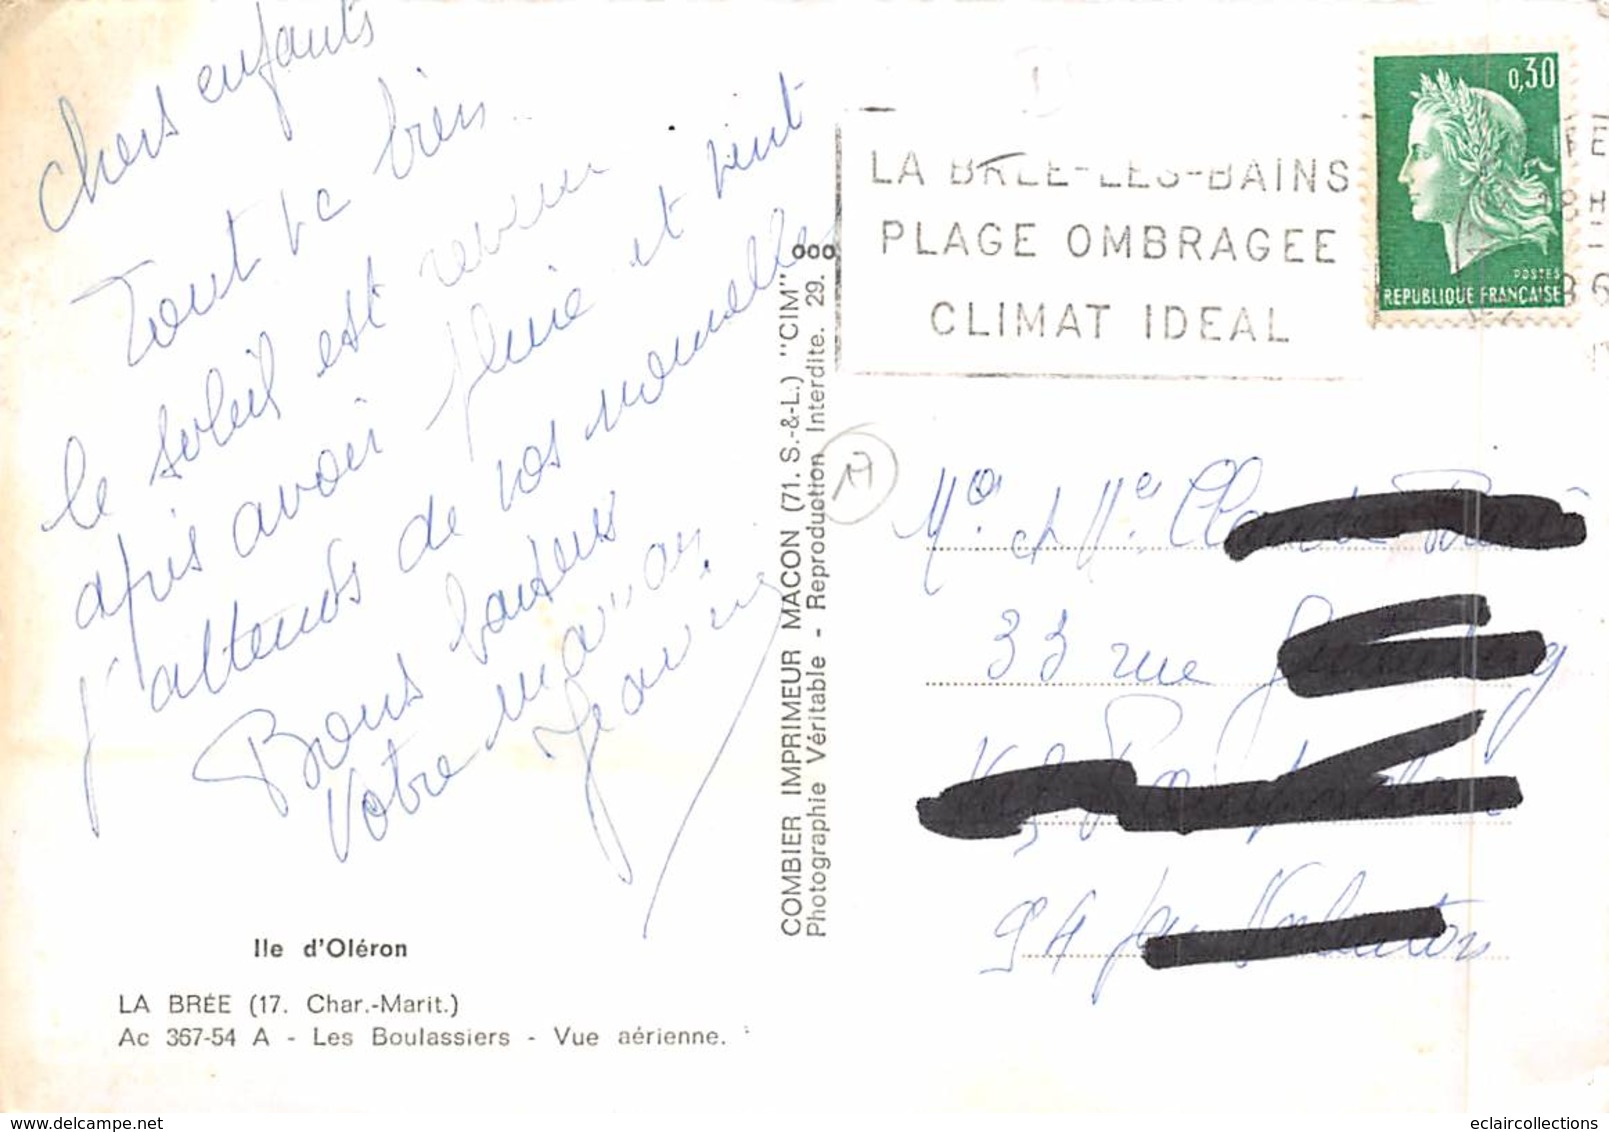 chers enfants
Tout va bien..
le soleil est revenu
après avoir pluie et vent
j'attends de vos nouvelles
Bons baisers
Votre maman
Jeannine
Ile d'Oléron
LA BRÉE (17. Char.-Marit.)
Ac 367-54 A - Les Boulassiers - Vue aérienne.
COMBIER IMPRIMEUR MACON (71. S.-&-L.) "CIM"
Photographie Véritable - Reproduction Interdite. 29.
LA BREE-LES-BAINS
PLAGE OMBRAGEE
CLIMAT IDEAL
0,30
POSTES
REPUBLIQUE FRANÇAISE
17
Mr et Me
33 rue
94
eclaircollections